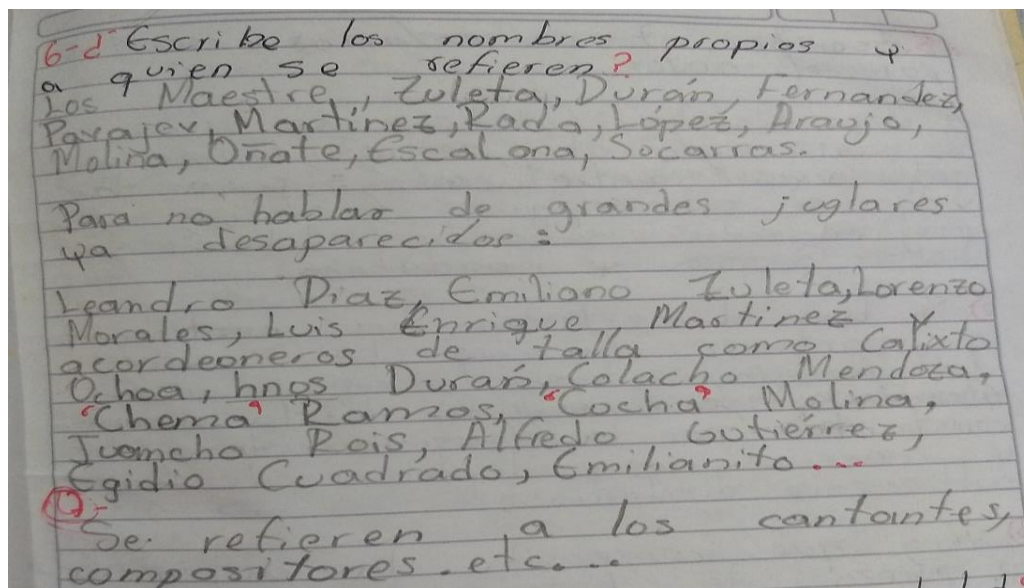 6-d Escribe los nombres propios y
a quien se refieren?
Los Maestre, Zuleta, Durán, Fernandez,
Pavajev, Martínez, Rada, López, Araujo,
Molina, Oñate, Escalona, Socarras.
Para no hablar de grandes juglares
ya desaparecidos:
Leandro Diaz, Emiliano Zuleta, Lorenzo
Morales, Luis Enrique Martinez Y
acordeoneros de talla como Calixto
Ochoa, hnos Durán, Colacho Mendoza,
"Chema" Ramos, "Cocha" Molina,
Juomcho Rois, Alfredo Gutiérrez,
Egidio Cuadrado, Emilianito...
Se refieren a los cantantes,
compositores. etc....